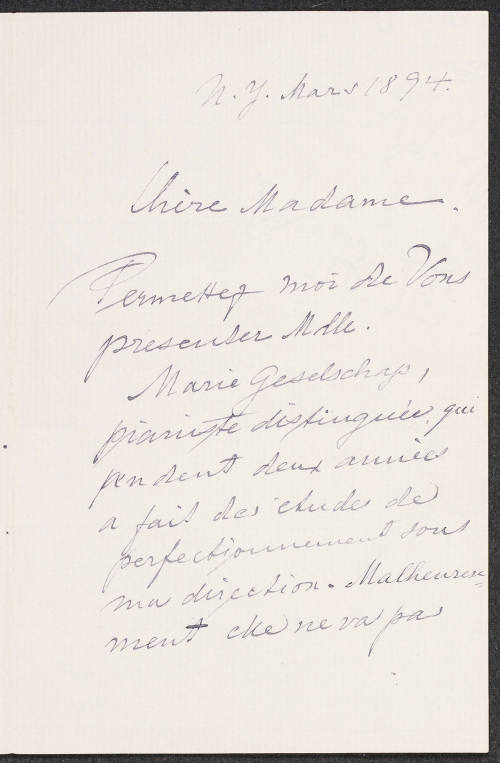 N. Y. Mars 1894.
Chère Madame.
Permettez moi de Vous
presenter Mlle.
Marie Geselschap,
pianiste distinguée, qui
pendent deux années
a fait des etudes de
perfectionnement sous
ma direction. Malheureu-
ment elle ne va pas